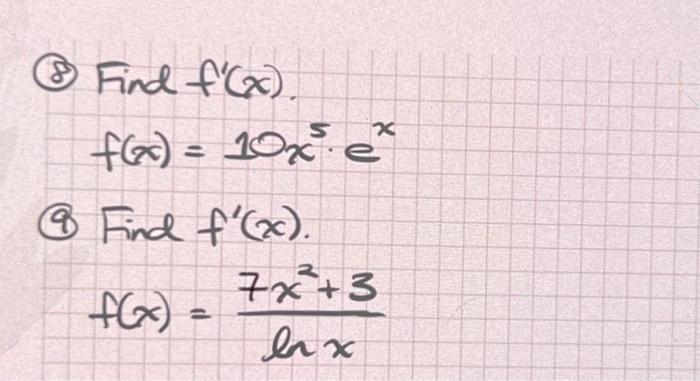 ⑧ Find f'(x).
f(x) = 10x⁵ · eˣ
⑨ Find f'(x).
f(x) = (7x² + 3) / (ln x)